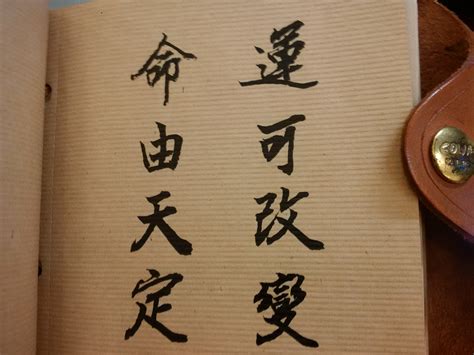 運可改變
命由天定